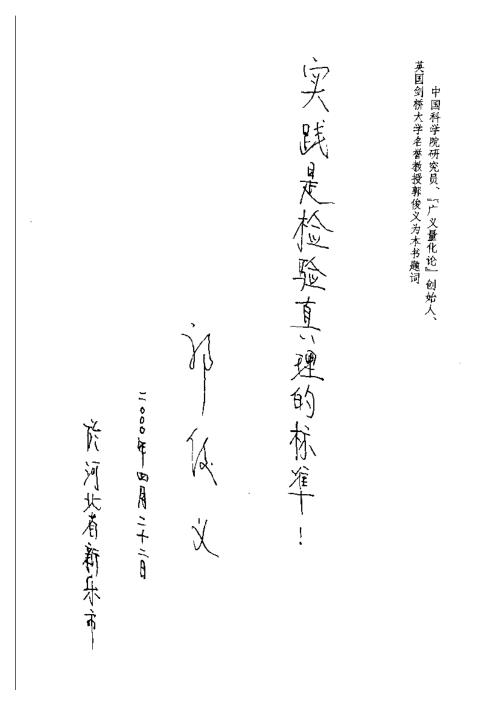 中国科学院研究员、『广义量化论』创始人、
英国剑桥大学名誉教授郭俊义为本书题词
实践是检验真理的标准！
郭俊义
二〇〇〇年四月二十二日
於河北省新乐市